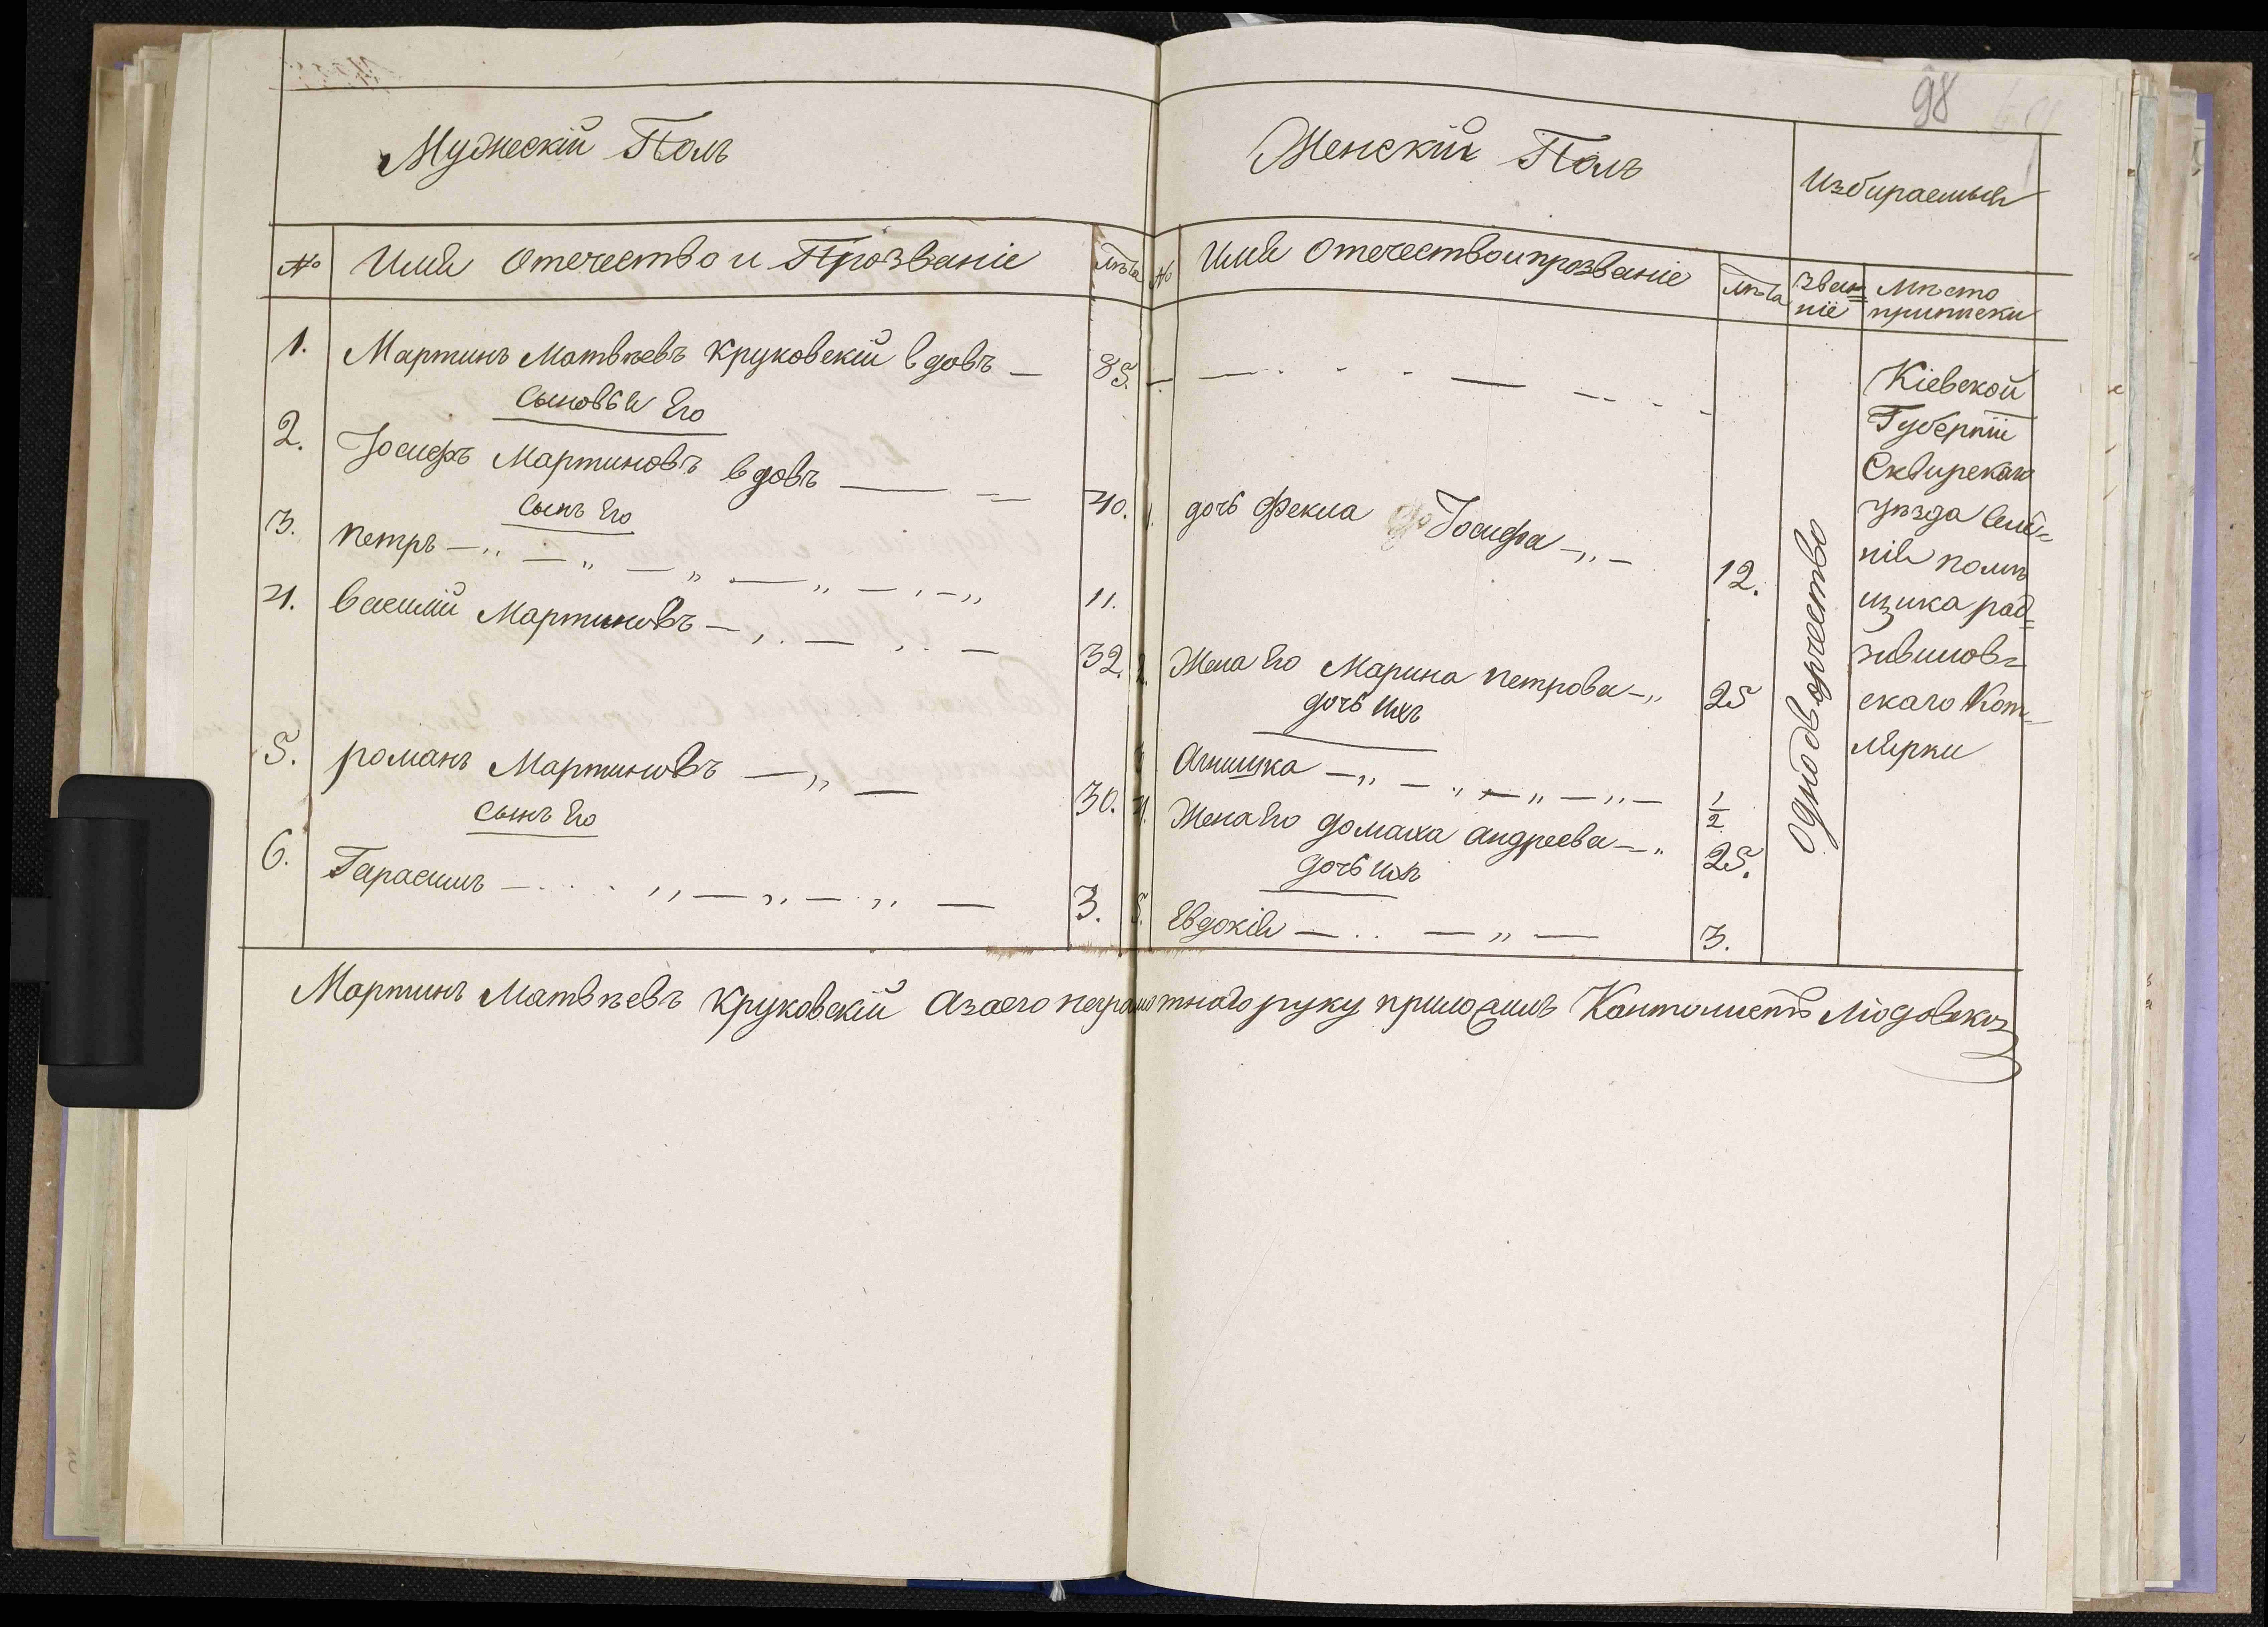 98
Мужескій Полъ
Женскій Полъ
Избираемыя
№ Имя Отечество и Прозваніе лѣта
№ Имя Отечество и прозваніе лѣта
Зва= Мѣсто
ніе приписки
1. Мартинъ Матвѣевъ Круковскій вдовъ — 85.
Сыновья Его
2. Іосифъ Мартиновъ вдовъ — 40.
Сынъ Его
3. Петръ — 11.
4. Василій Мартиновъ — 32.
5. романъ Мартиновъ — 30.
Сынъ Его
6. Гарасимъ — 3.
1. дочь Фекла Іосифа — 12.
2. Жена Его Марина Петрова — 25
дочь ихъ
3. Агнишка — 1/2
4. Жена Его домаха андреева — 25.
дочь ихъ
5. Евдокія — 3.
Однодворчество
Кіевской
Губерніи
Сквирскаго
уѣзда Селе=
нія помѣ
щика рад=
зивилов=
скаго Кот=
лярки
Мартинъ Матвѣевъ Круковскій А за его неграмотнаго руку приложилъ Кантонистъ Людовско